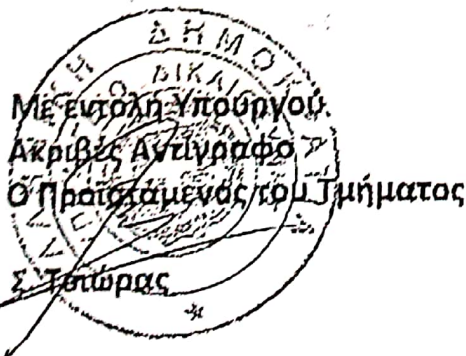 Με εντολή Υπουργού
Ακριβές Αντίγραφο
Ο Προϊστάμενος του Τμήματος
Σ. Τσιώρας